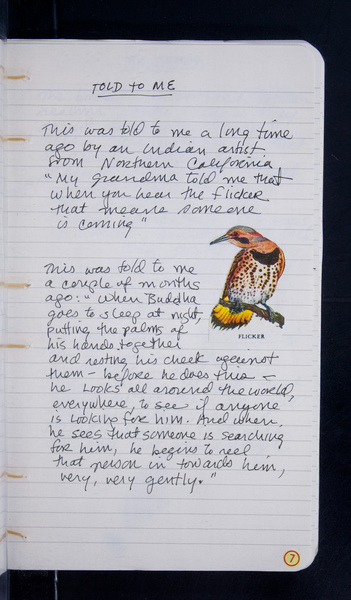 TOLD TO ME
This was told to me a long time
ago by an Indian artist
from Northern California
"My grandma told me that
when you hear the flicker
that means someone
is coming"
This was told to me
a couple of months
ago: "When Buddha
goes to sleep at night,
putting the palms of
his hands together
and resting his cheek against
them - before he does this -
he looks all around the world,
everywhere, to see if anyone
is looking for him. And when
he sees that someone is searching
for him, he begins to reel
that person in towards him,
very, very gently."
FLICKER
7